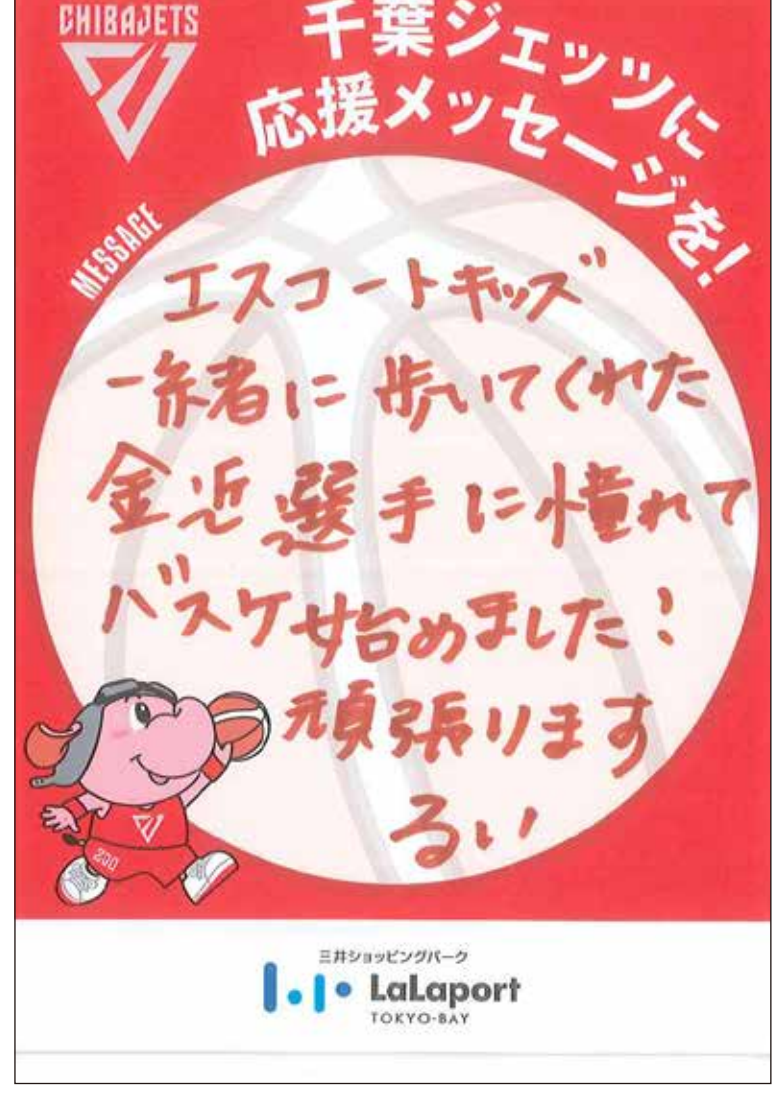 CHIBAJETS
千葉ジェッツに
応援メッセージを!
MESSAGE
エスコートキッズ
一緒に歩いてくれた
金近選手に憧れて
バスケ始めました!
頑張ります
るい
230
三井ショッピングパーク
LaLaport
TOKYO-BAY